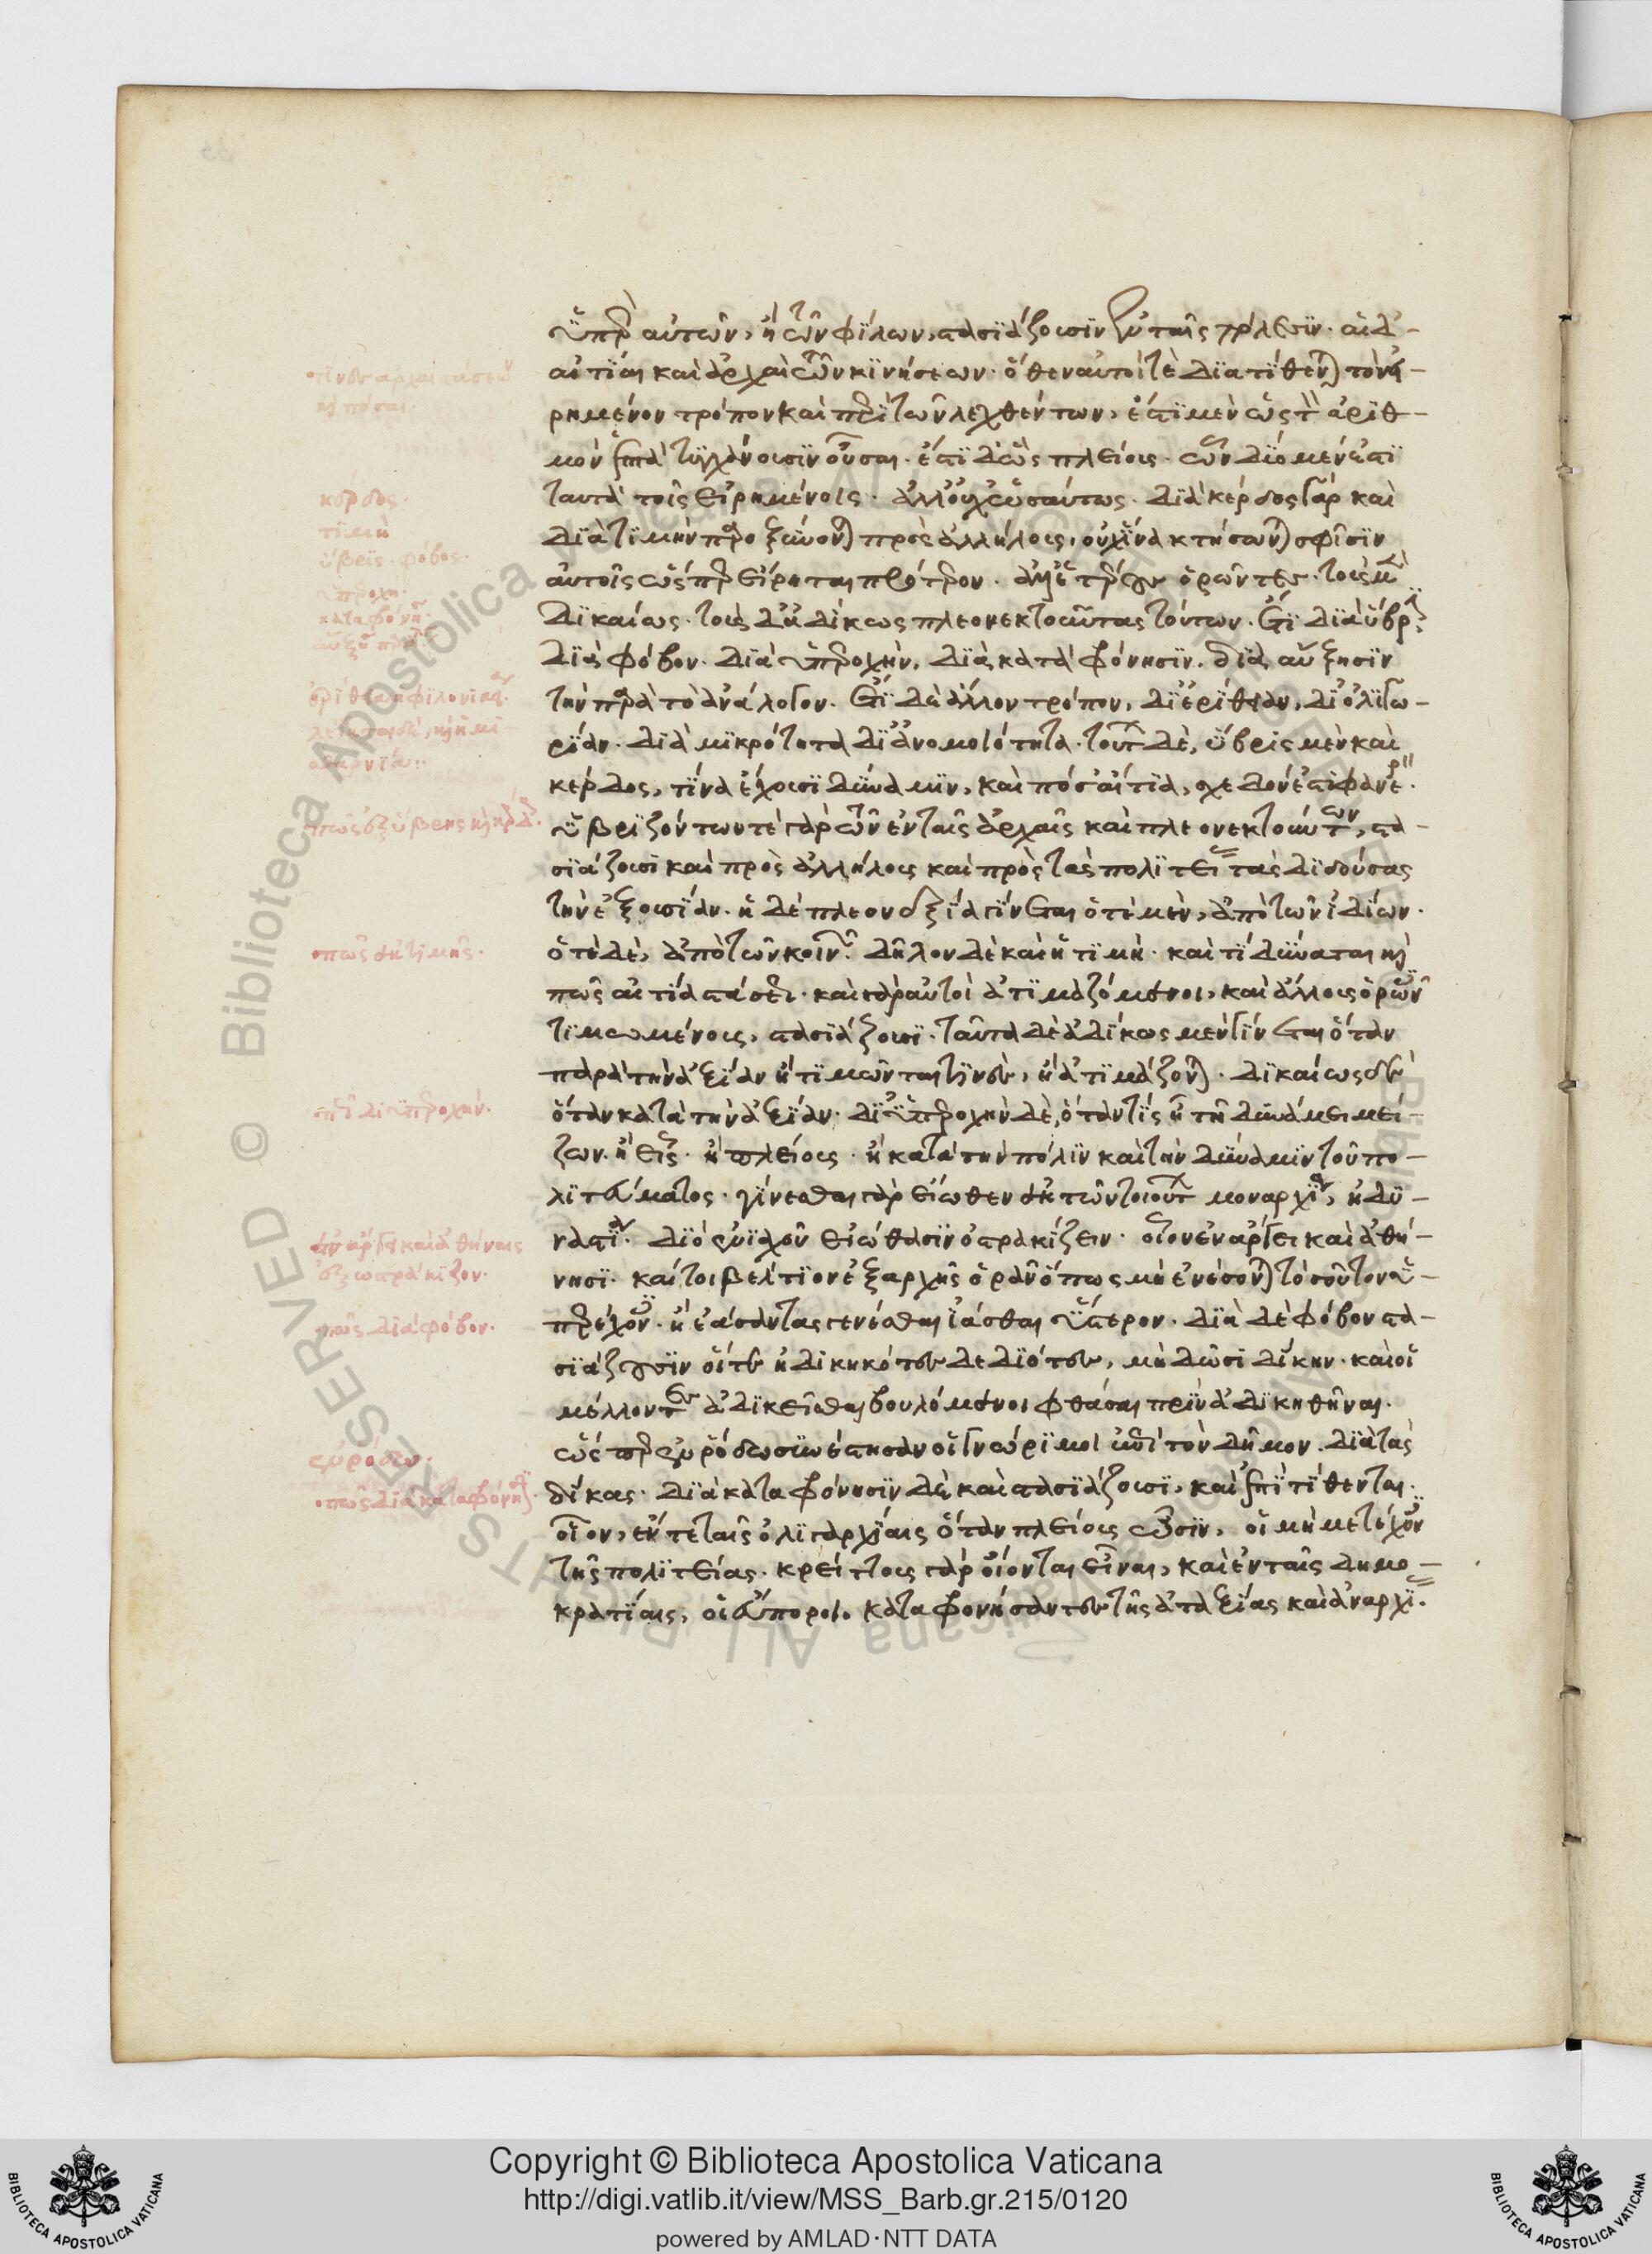 ὑπὲρ αὐτῶν, ἢ τῶν φίλων, στασιάζουσιν ἐν ταῖς πόλεσιν. αἱ δ᾽
αἰτίαι καὶ ἀρχαὶ τῶν κινήσεων. ὅθεν αὐτοί τε διατίθενται τὸν εἰ-
ρημένον τρόπον καὶ περὶ τῶν λεχθέντων, ἔστι μὲν ὡς τὸν ἀριθ-
μὸν ἑπτὰ τυγχάνουσιν οὖσαι. ἔστι δ᾽ ὡς πλείους. ὧν δύο μέν ἐστι
ταυτὰ τοῖς εἰρημένοις. ἀλλ᾽ οὐχ ὡσαύτως. διὰ κέρδος γὰρ καὶ
διὰ τιμὴν παροξύνονται πρὸς ἀλλήλους, οὐχ ἵνα κτήσωνται σφίσιν
αὐτοῖς ὥσπερ εἴρηται πρότερον. ἀλλ᾽ ἑτέρους ὁρῶντες. τοὺς μὲν
δικαίως. τοὺς δ᾽ ἀδίκως πλεονεκτοῦντας τούτων. ἔτι διὰ ὕβριν.
διὰ φόβον. διὰ ὑπεροχὴν. διὰ καταφρόνησιν. διὰ αὔξησιν
τὴν παρὰ τὸ ἀνάλογον. ἔτι δὲ ἄλλον τρόπον, δι᾽ ἐριθείαν, δι᾽ ὀλιγω-
ρίαν. διὰ μικρότητα δι᾽ ἀνομοιότητα. τούτων δὲ, ὕβρις μὲν καὶ
κέρδος, τίνα ἔχουσι δύναμιν, καὶ πόσ᾽ αἴτια, σχεδόν ἐστι φανερόν.
ὑβριζόντων τε γὰρ τῶν ἐν ταῖς ἀρχαῖς καὶ πλεονεκτούντων, στα-
σιάζουσι καὶ πρὸς ἀλλήλους καὶ πρὸς τὰς πολιτείας τὰς διδούσας
τὴν ἐξουσίαν. ἡ δὲ πλεονεξία γίνεται ὁτὲ μὲν, ἀπὸ τῶν ἰδίων.
ὁτὲ δὲ, ἀπὸ τῶν κοινῶν. δῆλον δὲ καὶ ἡ τιμὴ. καὶ τί δύναται καὶ
πῶς αἰτία στάσεως. καὶ γὰρ αὐτοὶ ἀτιμαζόμενοι, καὶ ἄλλους ὁρῶντες
τιμωμένους, στασιάζουσι. ταῦτα δὲ ἀδίκως μὲν γίνεται ὅταν
παρὰ τὴν ἀξίαν ἢ τιμῶνταί τινες, ἢ ἀτιμάζονται. δικαίως δὲ
ὅταν κατὰ τὴν ἀξίαν. δι᾽ ὑπεροχὴν δὲ, ὅταν τὶς ᾖ τῇ δυνάμει μεί-
ζων. ἢ εἷς. ἢ πλείους. ἢ κατὰ τὴν πόλιν καὶ τὴν δύναμιν τοῦ πο-
λιτεύματος. γίνεσθαι γὰρ εἴωθεν ἐκ τῶν τοιούτων μοναρχία, ἢ δυ-
ναστεία. διὸ ἐνιαχοῦ εἰώθασιν ὀστρακίζειν. οἷον ἐν ἄργει καὶ ἀθή-
νησι. καίτοι βέλτιον ἐξαρχῆς ὁρᾶν ὅπως μὴ ἐνέσονται τοσοῦτον ὑ-
περέχοντες. ἢ ἐάσαντας γενέσθαι ἰᾶσθαι ὕστερον. διὰ δὲ φόβον στα-
σιάζουσιν οἵ τε ἠδικηκότες δεδιότες, μὴ δῶσι δίκην. καὶ οἱ
μέλλοντες ἀδικεῖσθαι βουλόμενοι φθάσαι πρὶν ἀδικηθῆναι.
ὥσπερ ἐν ῥόδῳ συνέστησαν οἱ γνώριμοι ἐπὶ τὸν δῆμον. διὰ τὰς
δίκας. διὰ καταφρόνησιν δὲ καὶ στασιάζουσι, καὶ ἐπιτίθενται.
οἷον, ἔν τε ταῖς ὀλιγαρχίαις ὅταν πλείους ὦσιν, οἱ μὴ μετέχοντες
τῆς πολιτείας. κρείττους γὰρ οἴονται εἶναι, καὶ ἐν ταῖς δημο-
κρατίαις, οἱ εὔποροι. καταφρονήσαντες τῆς ἀταξίας καὶ ἀναρχίας.
κέρδος.
τιμὴ
ὕβρις. φόβος.
ὑπεροχὴ.
πῶς ἐξ ὕβρεως καὶ κέρδους.
πῶς ἐκ τιμῆς.
πῶς δι᾽ ὑπεροχήν.
ἐν ἄργει καὶ ἀθήναις
ἐξωστράκιζον.
πῶς διὰ φόβον.
ἐν ῥόδῳ.
πῶς διὰ καταφρόνησιν.
Copyright © Biblioteca Apostolica Vaticana
http://digi.vatlib.it/view/MSS_Barb.gr.215/0120
powered by AMLAD·NTT DATA